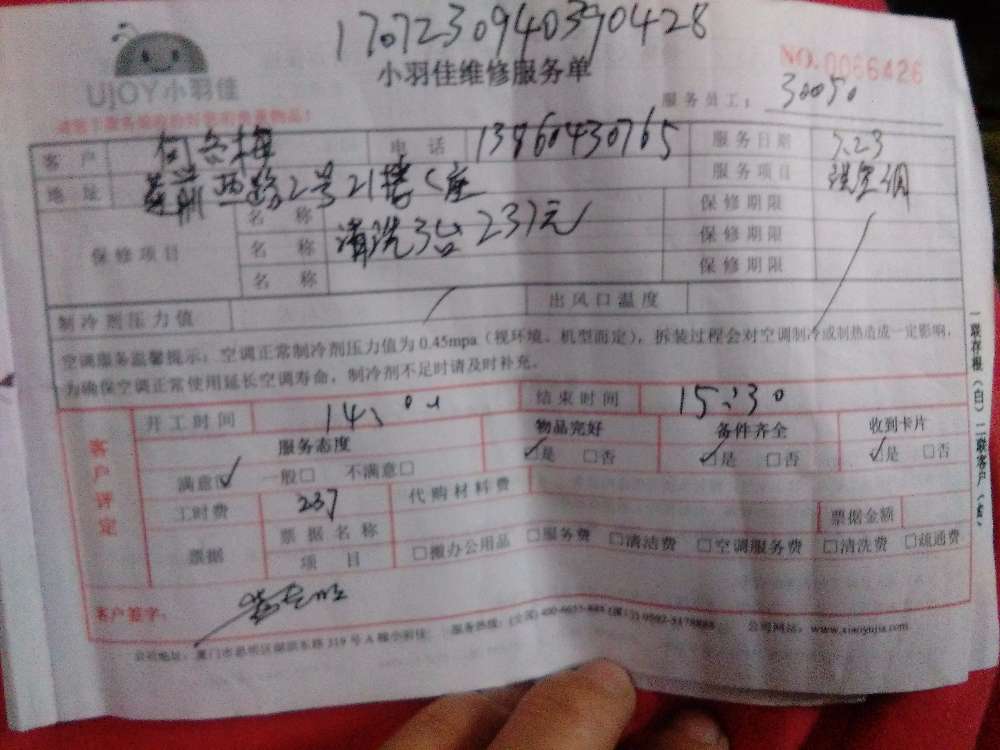 170723094039０428
UJOY小羽佳
小羽佳维修服务单
NO.0066426
服务员工: 30050
客户 电话 13860430765 服务日期 7.23
地址 西路2号21楼C座 服务项目 洗空调
保修项目 名称 清洗3台237元 保修期限
名称 保修期限
名称 保修期限
制冷剂压力值 出风口温度
空调服务温馨提示:空调正常制冷剂压力值为0.45mpa(视环境、机型而定),拆装过程会对空调制冷或制热造成一定影响,
为确保空调正常使用延长空调寿命,制冷剂不足时请及时补充。
客户评定
开工时间 结束时间 15:30
服务态度 物品完好 备件齐全 收到卡片
满意☑ 一般□ 不满意□ ☑是 □否 ☑是 □否 ☑是 □否
工时费 237 代购材料费
票据 票据名称 票据金额
项目 □搬办公用品 □服务费 □清洁费 □空调服务费 □清洗费 □疏通费
客户签字:
公司地址: 厦门市思明区湖滨东路319号A 服务热线: 公司网站: www.xiaoyujia.com
一联存根(白)二联客户